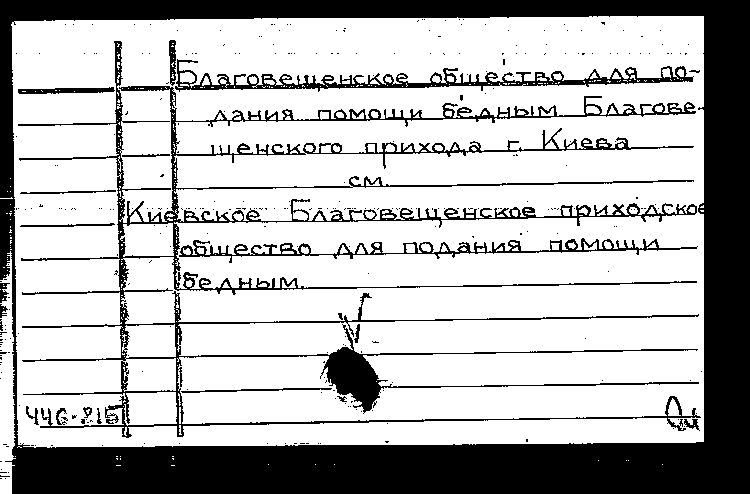 Благовещенское общество для по-
дания помощи бедным Благове-
щенского прихода г. Киева
см.
Киевское Благовещенское приходское
общество для подания помощи
бедным.
446-815